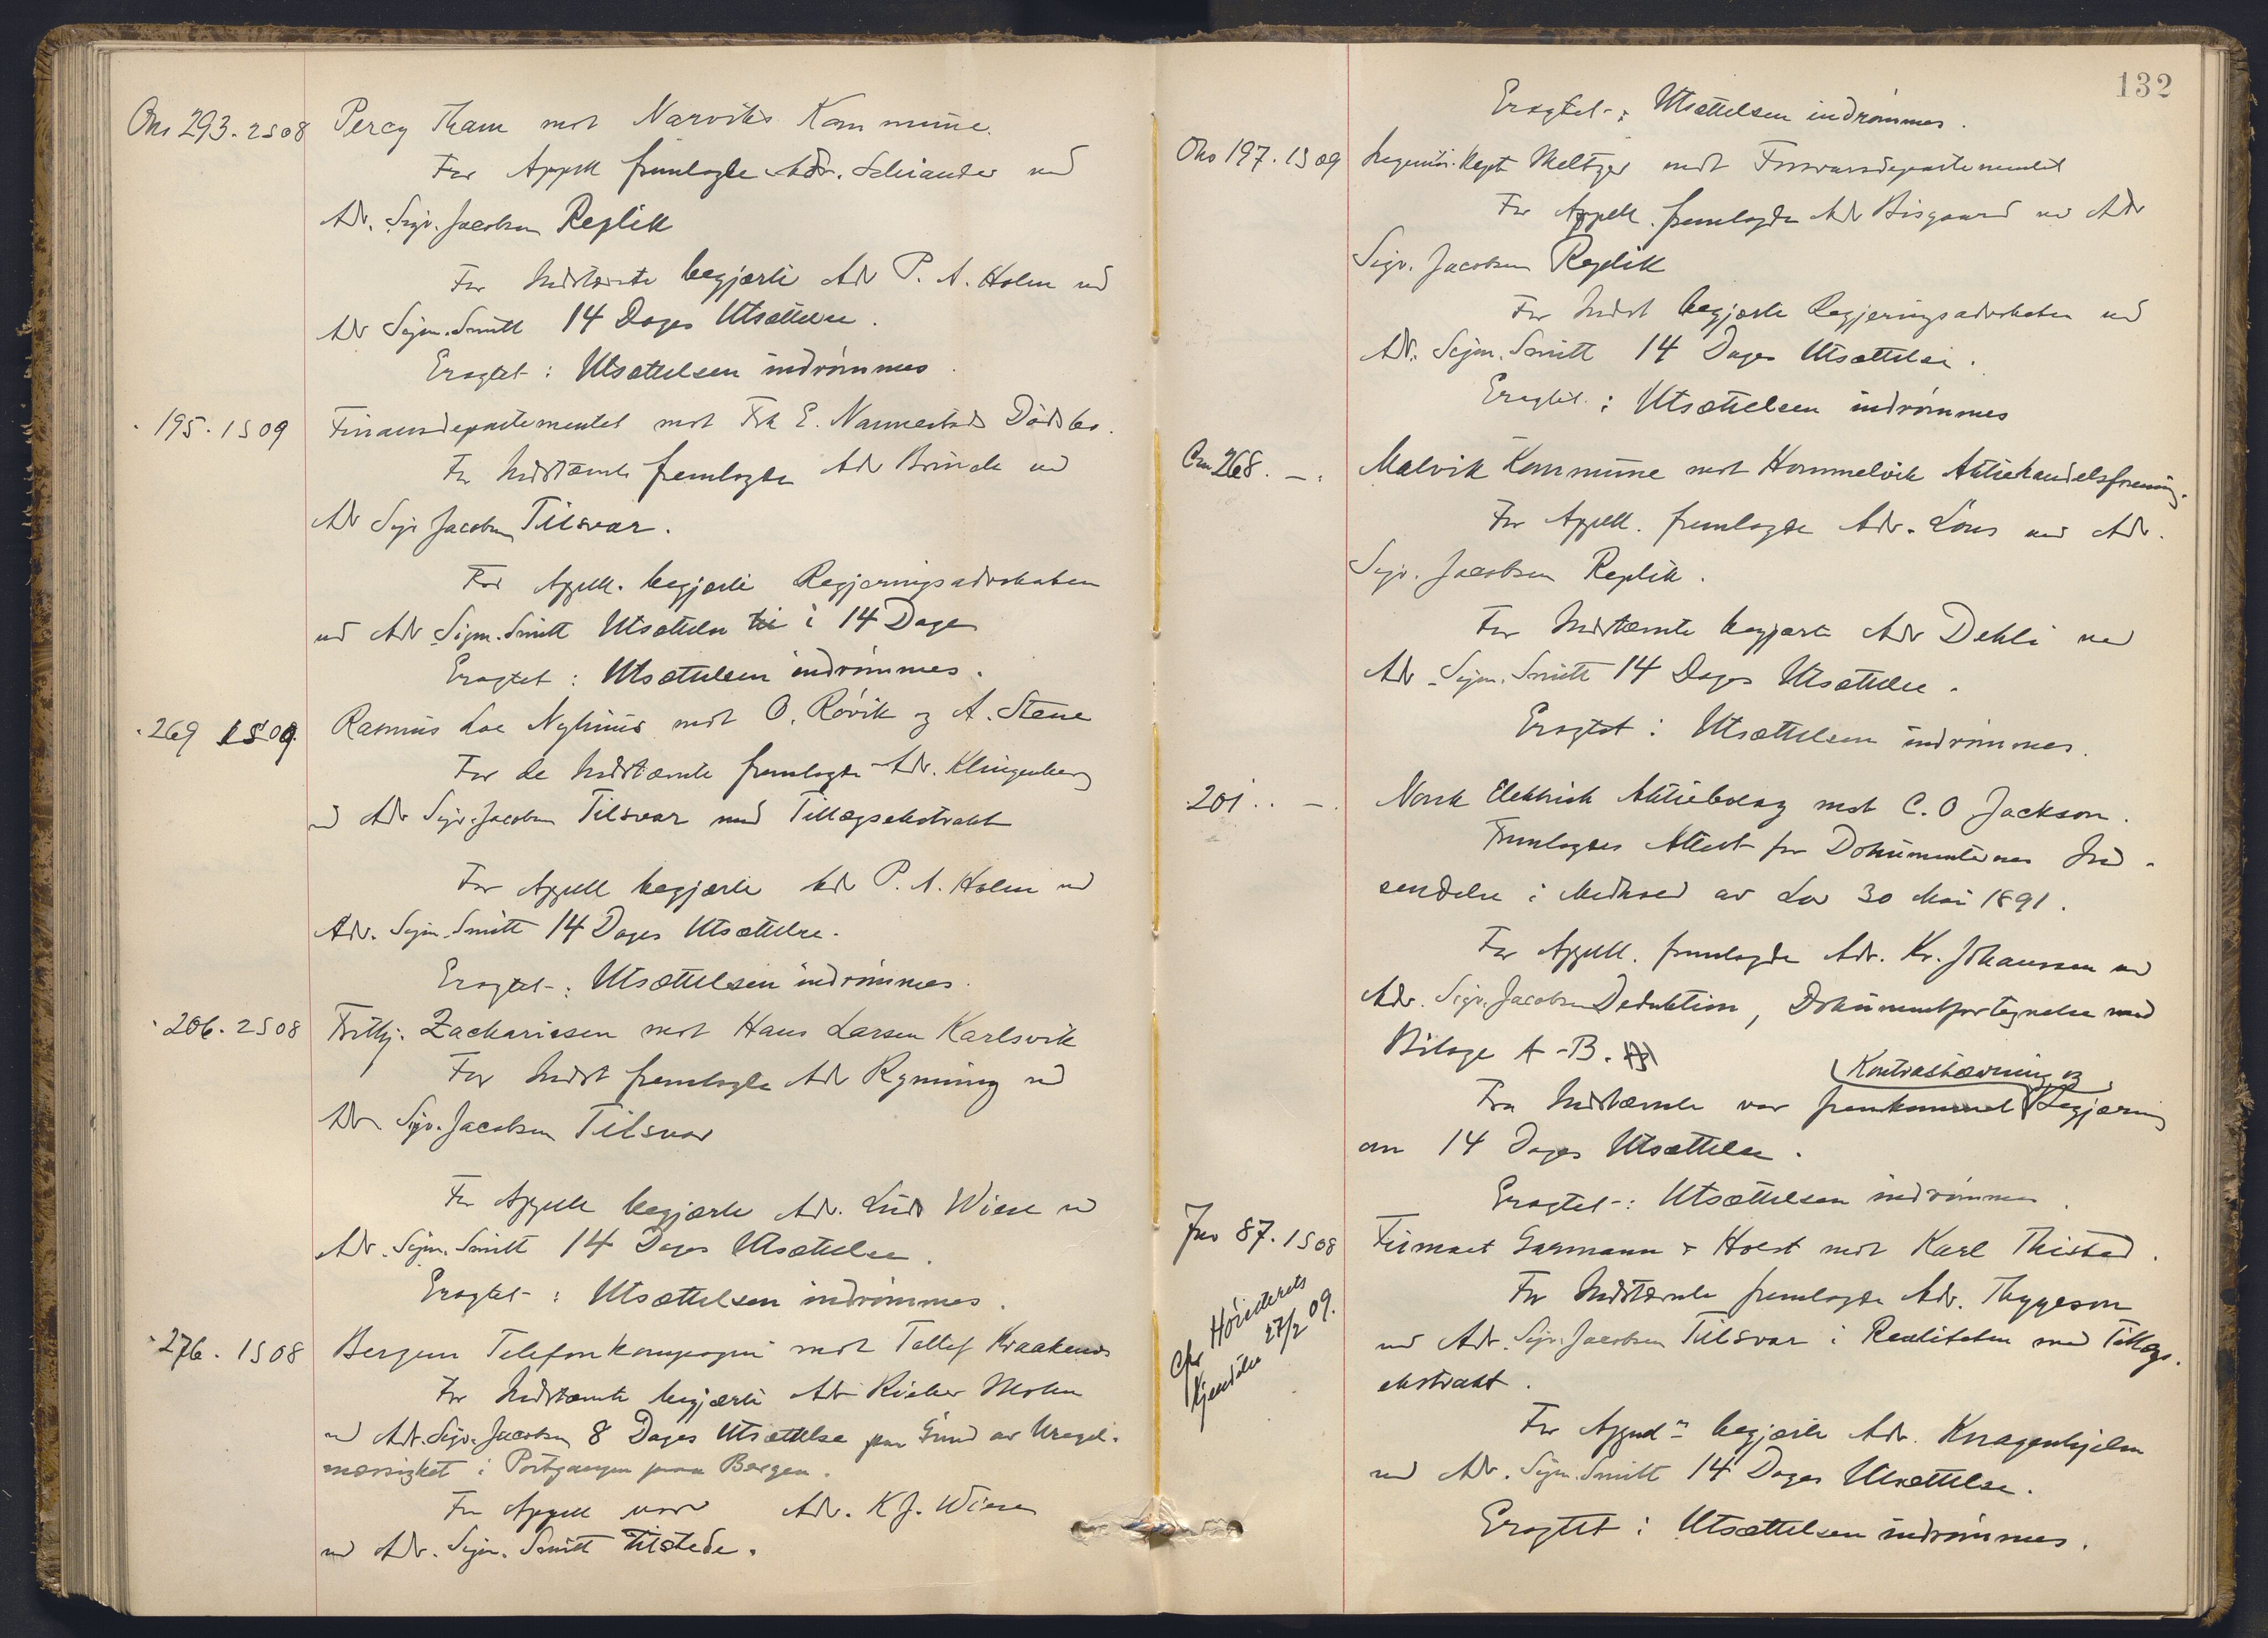 Ons 293. 2S08 Percy Tham mot Narviks Kommune.
For Appell fremlagde Adv. Schiander ved
Adv. Sigv. Jacobsen Replik
For Indstævnte begjærte Adv P. A. Holm ved
Adv Sigm. Smitt 14 Dages Utsættelse.
Eragtet: Utsættelsen indrømmes.
" 195. 1S09 Finansdepartementet mot Frk E. Nannestads Dødsbo.
For Indstævnte fremlagde Adv Brinch ved
Adv Sigv Jacobsen Tilsvar.
For Appell. begjærte Regjeringsadvokaten
ved Adv Sigm. Smitt Utsættelse i 14 Dage
Eragtet: Utsættelsen indrømmes.
" 269 1S09. Rasmus Loe Nyhuus mot O. Røvik og A. Stene
For de Indstævnte fremlagde Adv. Klingenberg
ved Adv Sigv. Jacobsen Tilsvar med Tillægsekstrakt
For Appell begjærte Adv P. A. Holm ved
Adv. Sigm. Smitt 14 Dages Utsættelse.
Eragtet: Utsættelsen indrømmes.
" 206. 2S08 Frithj. Zachariesen mot Hans Larsen Karlsvik
For Indst fremlagde Adv Rynning ved
Adv Sigv. Jacobsen Tilsvar
For Appell begjærte Adv. Ludv Wiese ved
Adv. Sigm. Smitt 14 Dages Utsættelse.
Eragtet: Utsættelsen indrømmes.
" 276. 1S08 Bergens Telefonkompagni mot Tollef Kraakenes
For Indstævnte begjærte Adv Rieber Mohn
ved Adv. Sigv. Jacobsen 8 Dages Utsættelse paa Grund av Uregel-
mæssighet i Postgangen fra Bergen.
For Appell var Adv. K J. Wiese
ved Adv. Sigm. Smitt tilstede.
132
Eragtet: Utsættelsen indrømmes.
Ons 197. 1S09 Ingeniør-Kapt Meltzer mot Forsvarsdepartementet
For Appell. fremlagde Adv Bisgaard ved Adv
Sigv. Jacobsen Replik
For Indst begjærte Regjeringsadvokaten ved
Adv. Sigm. Smitt 14 Dages Utsættelse.
Eragtet: Utsættelsen indrømmes
Ons 268. - " Malvik Kommune mot Hommelvik Aktiehandelsforening.
For Appell. fremlagde Adv. Lous ved Adv.
Sigv. Jacobsen Replik.
For Indstævnte begjærte Adv Dehli ved
Adv Sigm. Smitt 14 Dages Utsættelse.
Eragtet: Utsættelsen indrømmes.
201.. - . Norsk Elektrisk Aktiebolag mot C. O Jackson.
Fremlagdes Attest for Dokumenternes Ind-
sendelse i Medhold av Lov 30 Mai 1891.
For Appell. fremlagde Adv. Kr. Johanssen ved
Adv. Sigv. Jacobsen Deduktion, Dokumentfortegnelse med
Bilage A-B.
Kontrastævning og
Fra Indstævnte var fremkommet Begjæring
om 14 Dages Utsættelse.
Eragtet: Utsættelsen indrømmes.
Jno 87. 1S08 Firmaet Garmann & Holst mot Karl Thistad.
cfr Høiesterets
Kjendelse 27/2 09.
For Indstævnte fremlagde Adv. Thygeson
ved Adv. Sigv. Jacobsen Tilsvar i Realiteten med Tillægs-
ekstrakt.
For Appell begjærte Adv. Knagenhjelm
ved Adv. Sigm. Smitt 14 Dages Utsættelse.
Eragtet: Utsættelsen indrømmes.